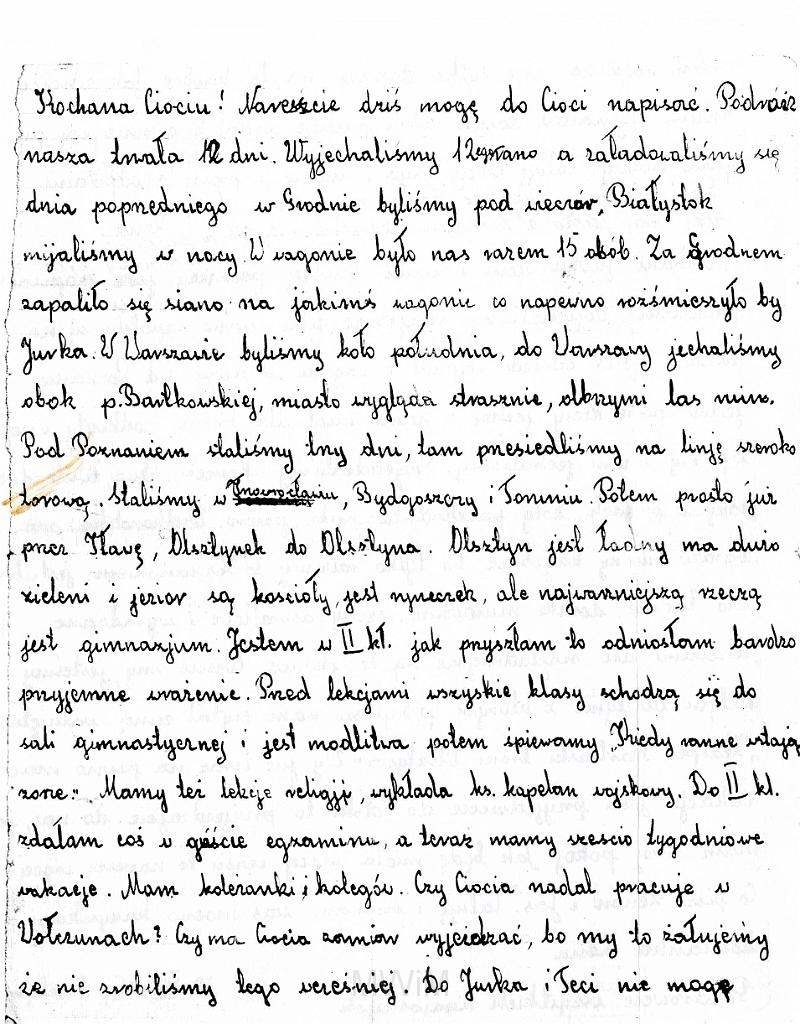 Kochana Ciociu! Nareszcie dziś mogę do Cioci napisać. Podróż
nasza trwała 12 dni. Wyjechaliśmy 12 rano a załadowaliśmy się
dnia poprzedniego w Grodnie byliśmy pod wieczór, Białystok
mijaliśmy w nocy W wagonie było nas razem 15 osób. Za Grodnem
zapaliło się siano na jakimś wagonie co napewno rozśmieszyło by
Jurka. W Warszawie byliśmy koło południa, do Warszawy jechaliśmy
obok p. Bartkowskiej, miasto wygląda strasznie, olbrzymi las ruin.
Pod Poznaniem staliśmy trzy dni, tam przesiedliśmy na linję szeroko
torową. Staliśmy w Inowrocławiu, Bydgoszczy i Toruniu. Potem prosto już
przez Iławę, Olsztynek do Olsztyna. Olsztyn jest ładny ma dużo
zieleni i jezior są kościoły, jest ryneczek, ale najważniejszą rzeczą
jest gimnazjum. Jestem w II kl. jak przyszłam to odniosłam bardzo
przyjemne wrażenie. Przed lekcjami wszyskie klasy schodzą się do
sali gimnastycznej i jest modlitwa potem śpiewamy „Kiedy ranne wstają
zorze". Mamy też lekcje religji, wykłada ks. kapelan wojskowy. Do II kl.
zdałam coś w guście egzaminu, a teraz mamy sześcio tygodniowe
wakacje. Mam koleżanki i kolegów. Czy Ciocia nadal pracuje w
Wołczunach? Czy ma Ciocia zamiar wyjeżdżać, bo my to żałujemy
że nie zrobiliśmy tego wcześniej. Do Jurka i Teci nie mogę
MWiM